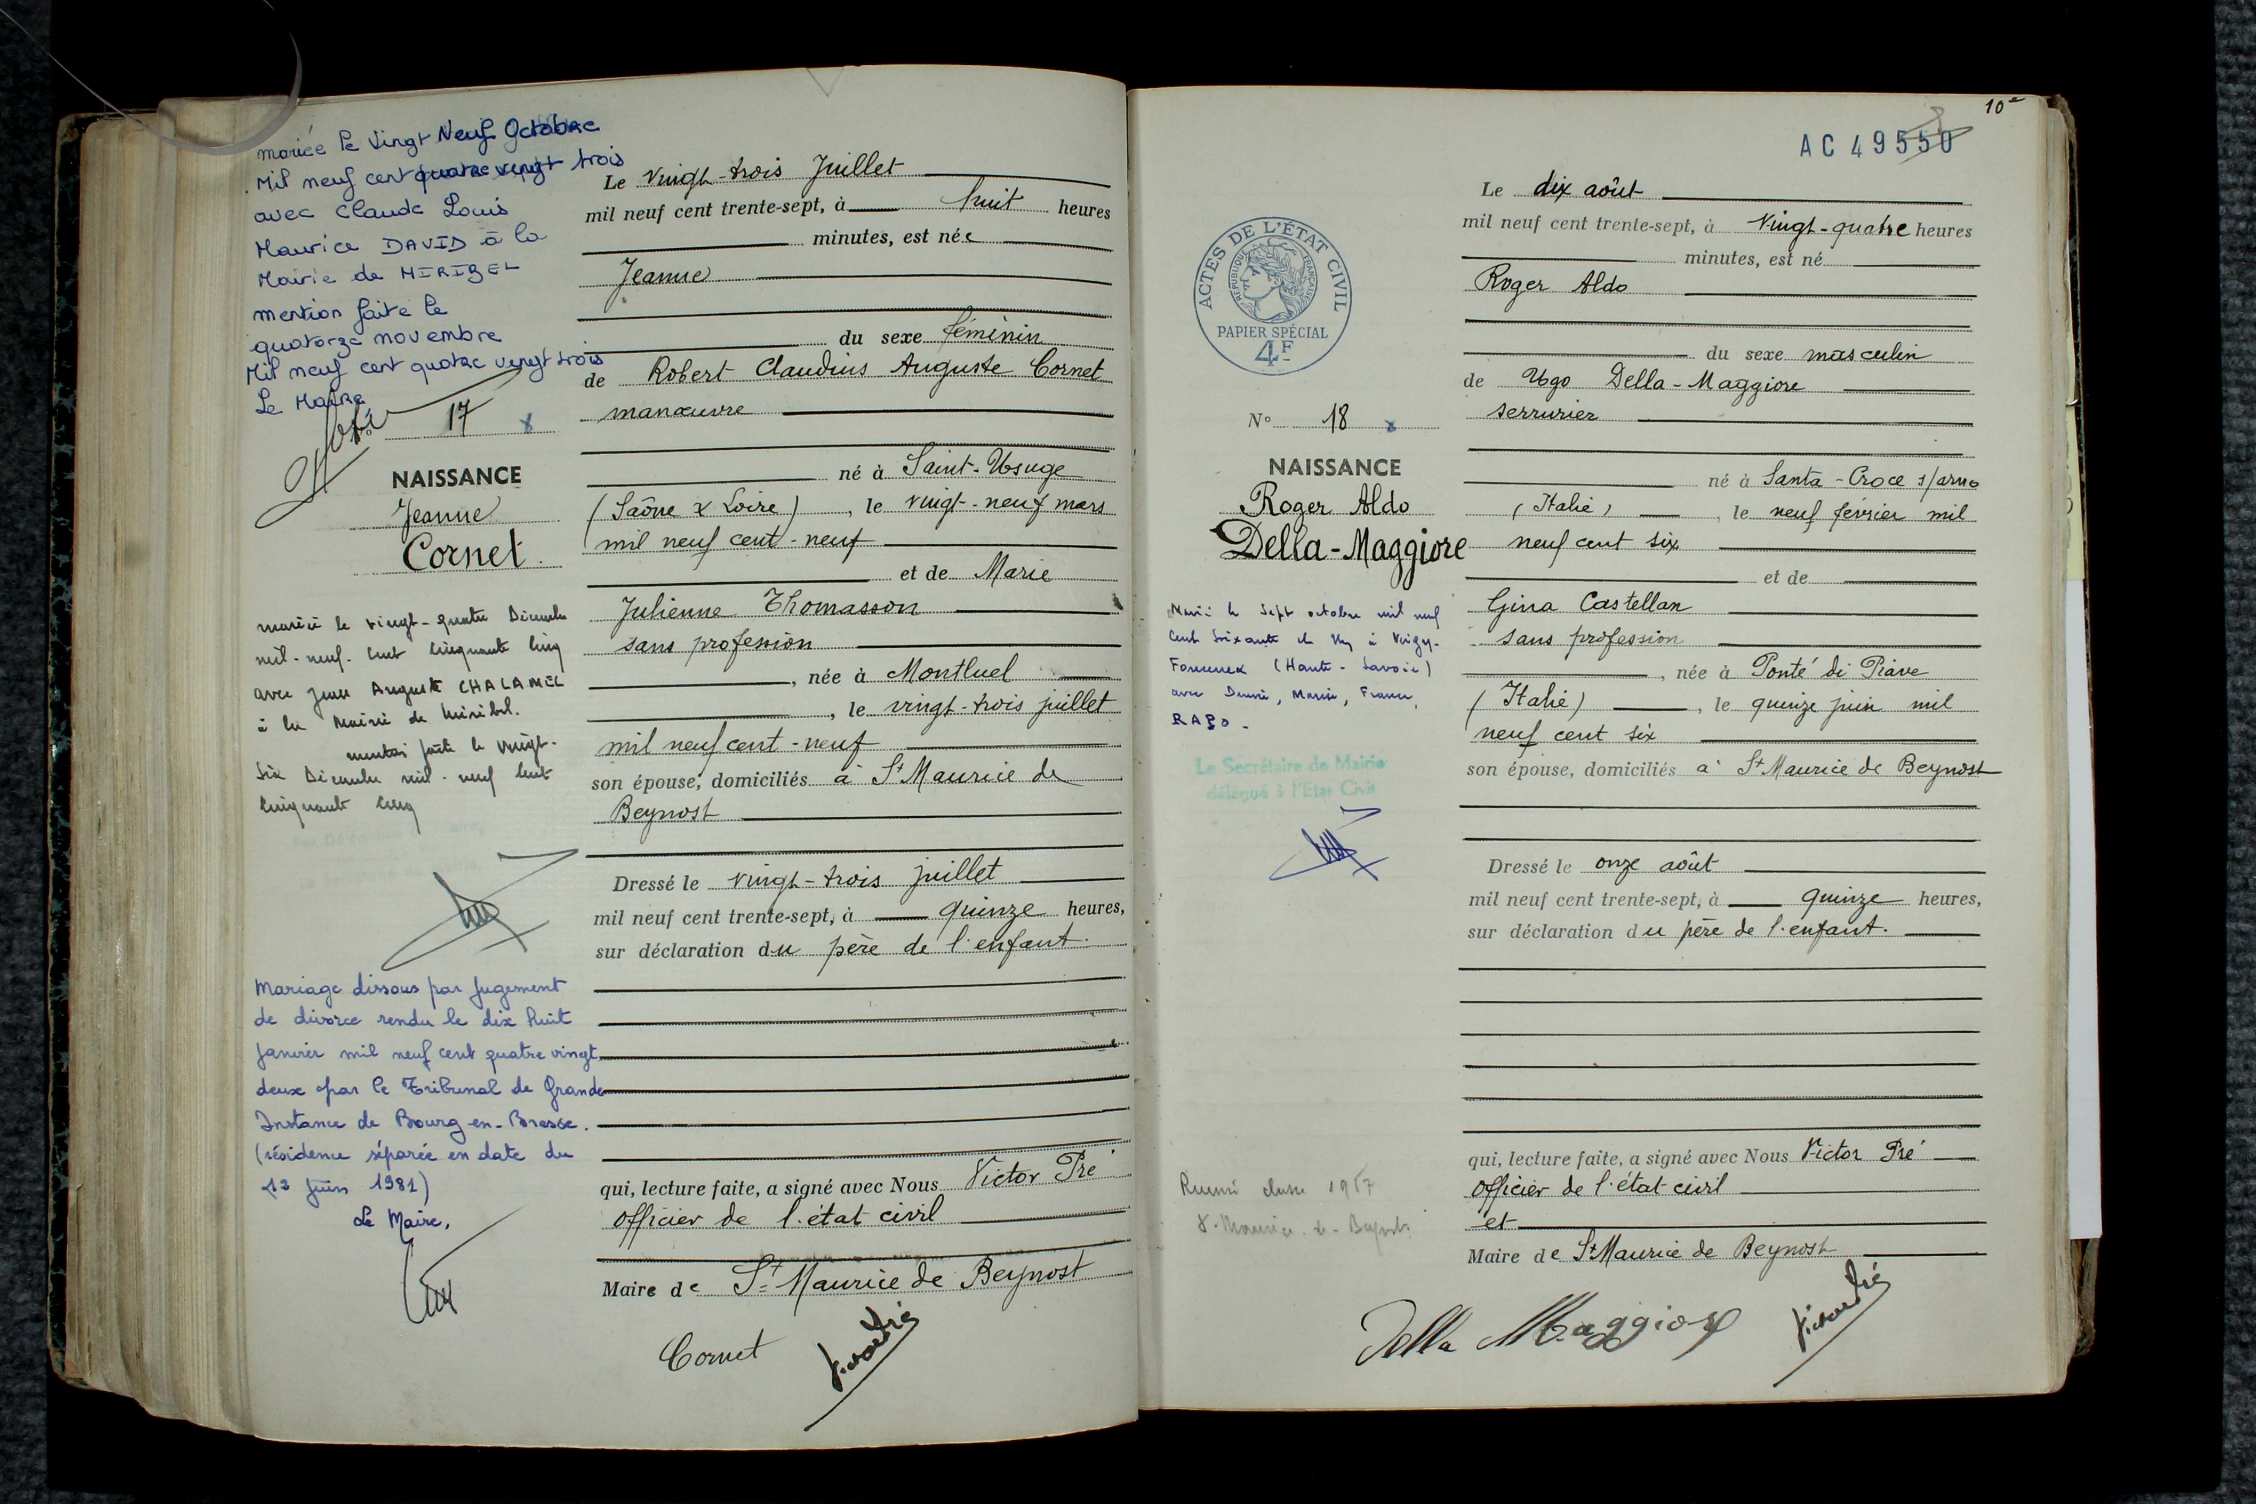 mariée le vingt Neuf Octobre
Mil neuf cent quatre vingt trois
avec Claude Louis
Maurice DAVID à la
Mairie de MIRIBEL
mention faite le
quatorze novembre
Mil neuf cent quatre vingt trois
Le Maire
17
NAISSANCE
Jeanne
Cornet
mariée le vingt-quatre Décembre
mil-neuf-cent cinquante cinq
avec Jean Auguste CHALAMEL
à la Mairie de Miribel.
mention faite le vingt-
six Décembre mil-neuf cent
cinquante cinq
Mariage dissous par jugement
de divorce rendu le dix huit
janvier mil neuf cent quatre vingt
deux par le Tribunal de Grande
Instance de Bourg-en-Bresse.
(résidence séparée en date du
13 Juin 1981)
Le Maire,
Le vingt-trois Juillet
mil neuf cent trente-sept, à huit heures
minutes, est née
Jeanne
du sexe féminin
de Robert Claudius Auguste Cornet
manœuvre
né à Saint-Usuge
(Saône & Loire), le vingt-neuf mars
mil neuf cent-neuf
et de Marie
Julienne Thomasson
sans profession
, née à Montluel
, le vingt-trois juillet
mil neuf cent-neuf
son épouse, domiciliés à St Maurice de
Beynost
Dressé le vingt-trois juillet
mil neuf cent trente-sept, à quinze heures,
sur déclaration du père de l'enfant.
qui, lecture faite, a signé avec Nous Victor Pré
Officier de l'état civil
Maire de St Maurice de Beynost
Cornet
10e
AC 49550
ACTES DE L'ÉTAT CIVIL
RÉPUBLIQUE FRANÇAISE
PAPIER SPÉCIAL
4F
No 18
NAISSANCE
Roger Aldo
Della-Maggiore
Marié le sept octobre mil neuf
cent soixante et un à Veigy-
Foncenex (Haute-Savoie)
avec Denise, Marie, France,
Le Secrétaire de Mairie
délégué à l'Etat Civil
Le dix août
mil neuf cent trente-sept, à Vingt-quatre heures
minutes, est né
Roger Aldo
du sexe masculin
de Ugo Della-Maggiore
serrurier
né à Santa-Croce s/arno
(Italie), le neuf février mil
neuf cent six
et de
Gina Castellan
sans profession
, née à Ponté di Piave
(Italie), le quinze juin mil
neuf cent six
son épouse, domiciliés à St Maurice de Beynost
Dressé le onze août
mil neuf cent trente-sept, à quinze heures,
sur déclaration du père de l'enfant.
qui, lecture faite, a signé avec Nous Victor Pré
Officier de l'état civil
et
Maire de St Maurice de Beynost
Della Maggiore